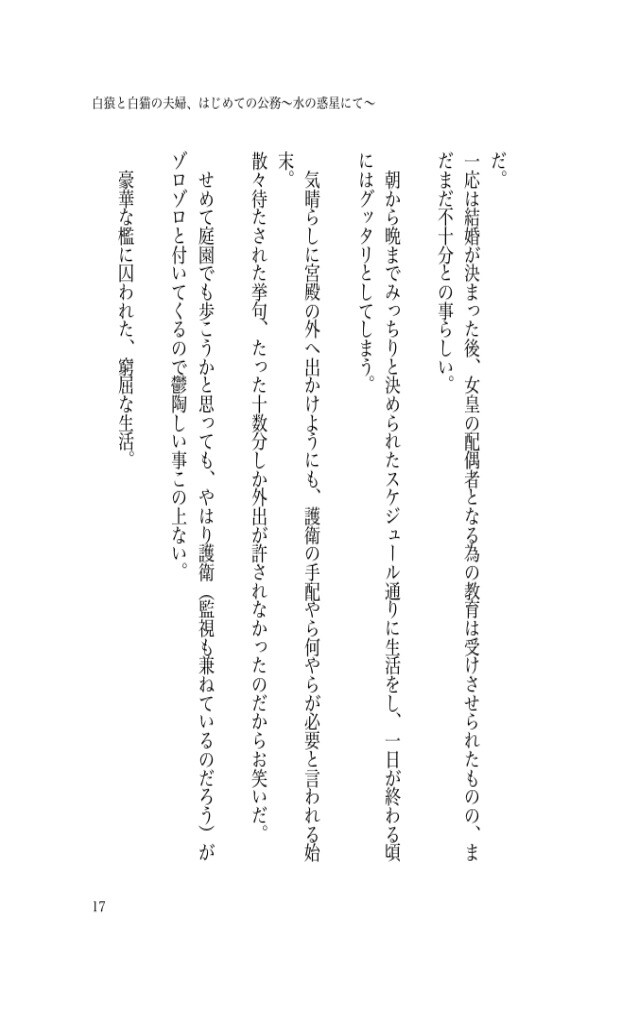 白猿と白猫の夫婦、はじめての公務〜水の惑星にて〜
だ。
一応は結婚が決まった後、女皇の配偶者となる為の教育は受けさせられたものの、ま
だまだ不十分との事らしい。
朝から晩までみっちりと決められたスケジュール通りに生活をし、一日が終わる頃
にはグッタリとしてしまう。
気晴らしに宮殿の外へ出かけようにも、護衛の手配やら何やらが必要と言われる始
末。
散々待たされた挙句、たった十数分しか外出が許されなかったのだからお笑いだ。
せめて庭園でも歩こうかと思っても、やはり護衛（監視も兼ねているのだろう）が
ゾロゾロと付いてくるので鬱陶しい事この上ない。
豪華な檻に囚われた、窮屈な生活。
17